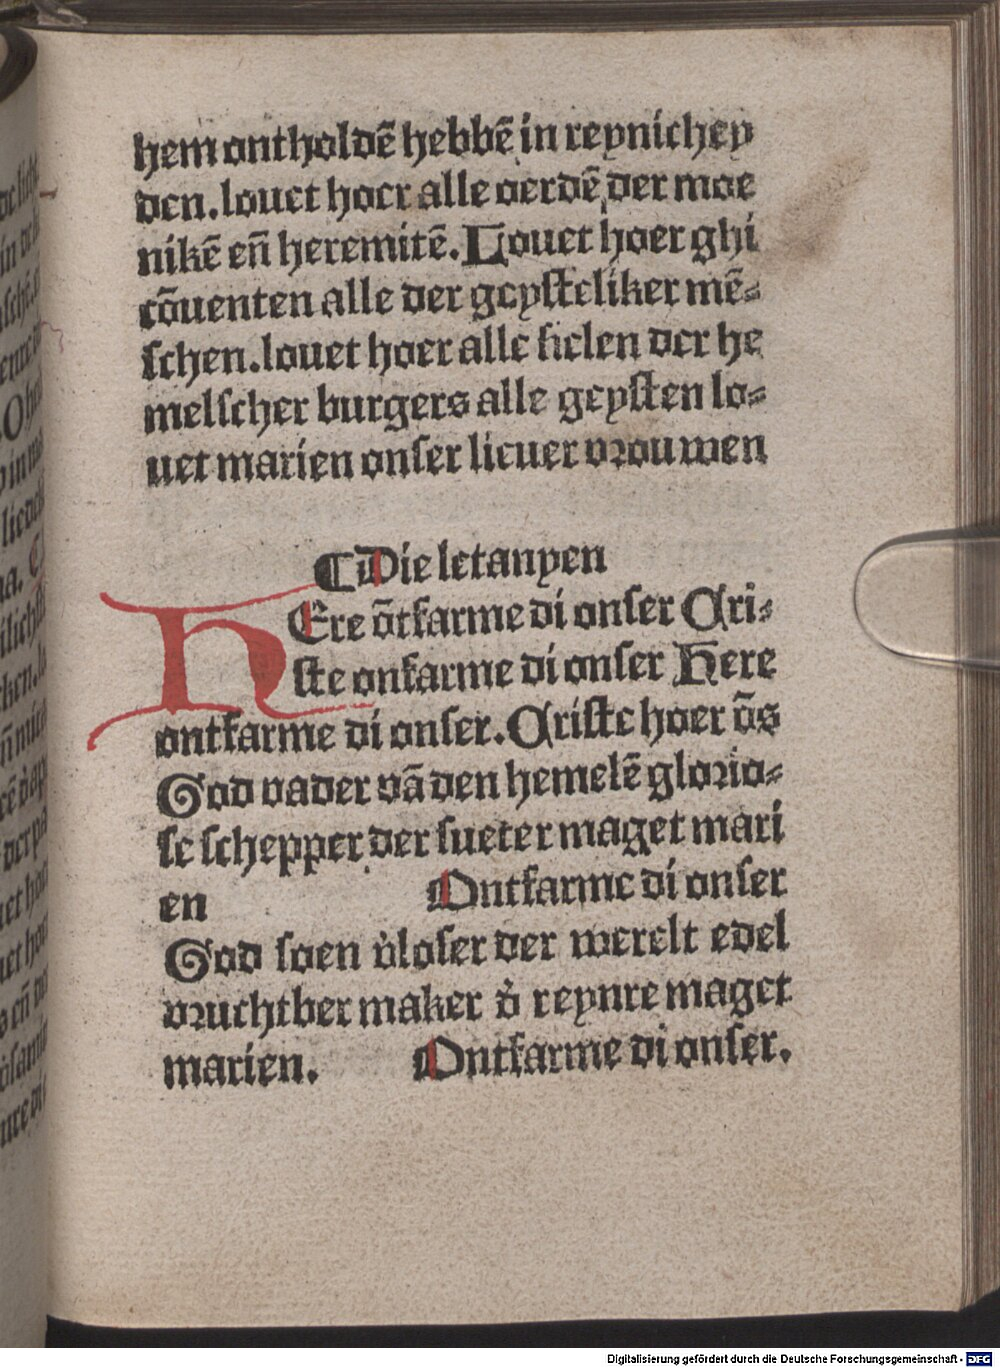 hem ontholdē hebbē in reynichey
den. louet hoer alle oerdē der moe
nikē en̄ heremitē. Louet hoer ghi
cōuenten alle der geysteliker mē⸗
schen. louet hoer alle sielen der he
melscher burgers alle geysten lo⸗
uet marien onser lieuer vrouwen
¶ Die letanyen
HEre ōtfarme di onser Cri⸗
ste onfarme di onser Here
ontfarme di onser. Criste hoer ōs
God vader vā den hemelē glorio⸗
se schepper der sueter maget mari
en Ontfarme di onser
God soen v̓loser der werelt edel
vruchtber maker d̓ reynre maget
marien. Ontfarme di onser.
Digitalisierung gefördert durch die Deutsche Forschungsgemeinschaft - DFG